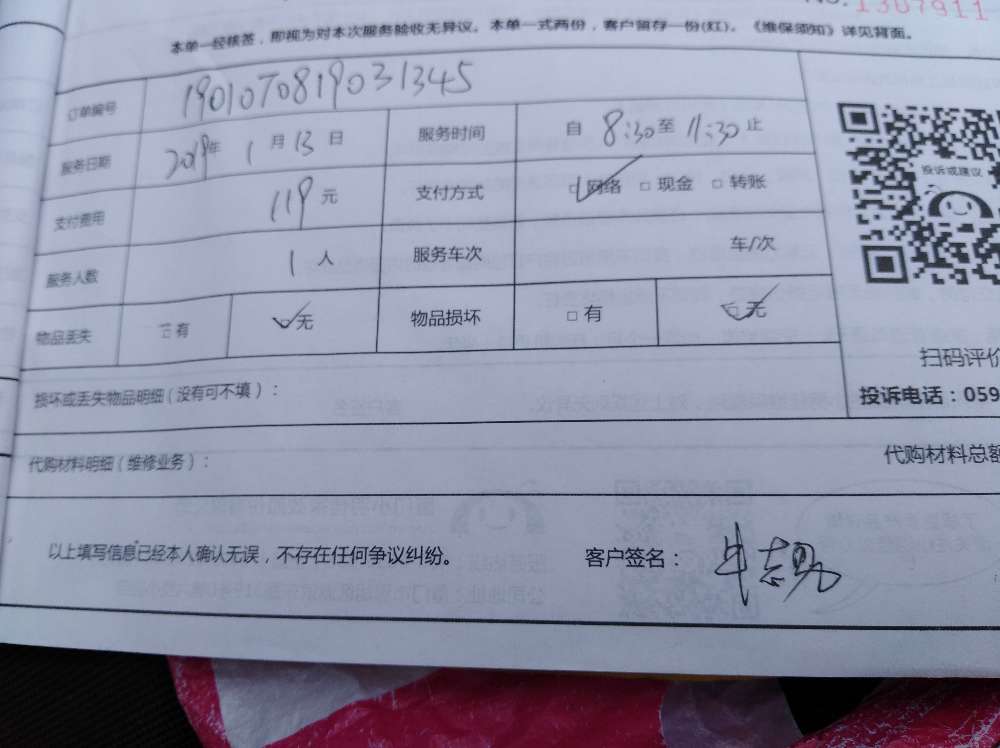 1307911
本单一经核签，即视为对本次服务验收无异议。本单一式两份，客户留存一份(红)。《维保须知》详见背面。
订单编号 190107081903 1345
服务日期 2019年 1 月 13 日 服务时间 自 8:30 至 11:30 止
支付费用 119 元 支付方式 □网络 □现金 □转账
服务人数 1 人 服务车次 车/次
物品丢失 □有 □无 物品损坏 □有 □无
投诉或建议
扫码评价
投诉电话：059
损坏或丢失物品明细（没有可不填）：
代购材料明细（维修业务）： 代购材料总额
以上填写信息已经本人确认无误，不存在任何争议纠纷。 客户签名：